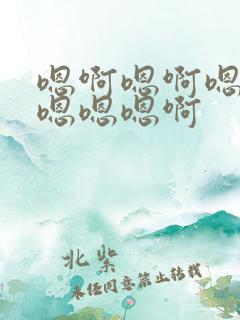 嗯啊嗯啊嗯
嗯嗯嗯啊
北柴
未经同意禁止转载